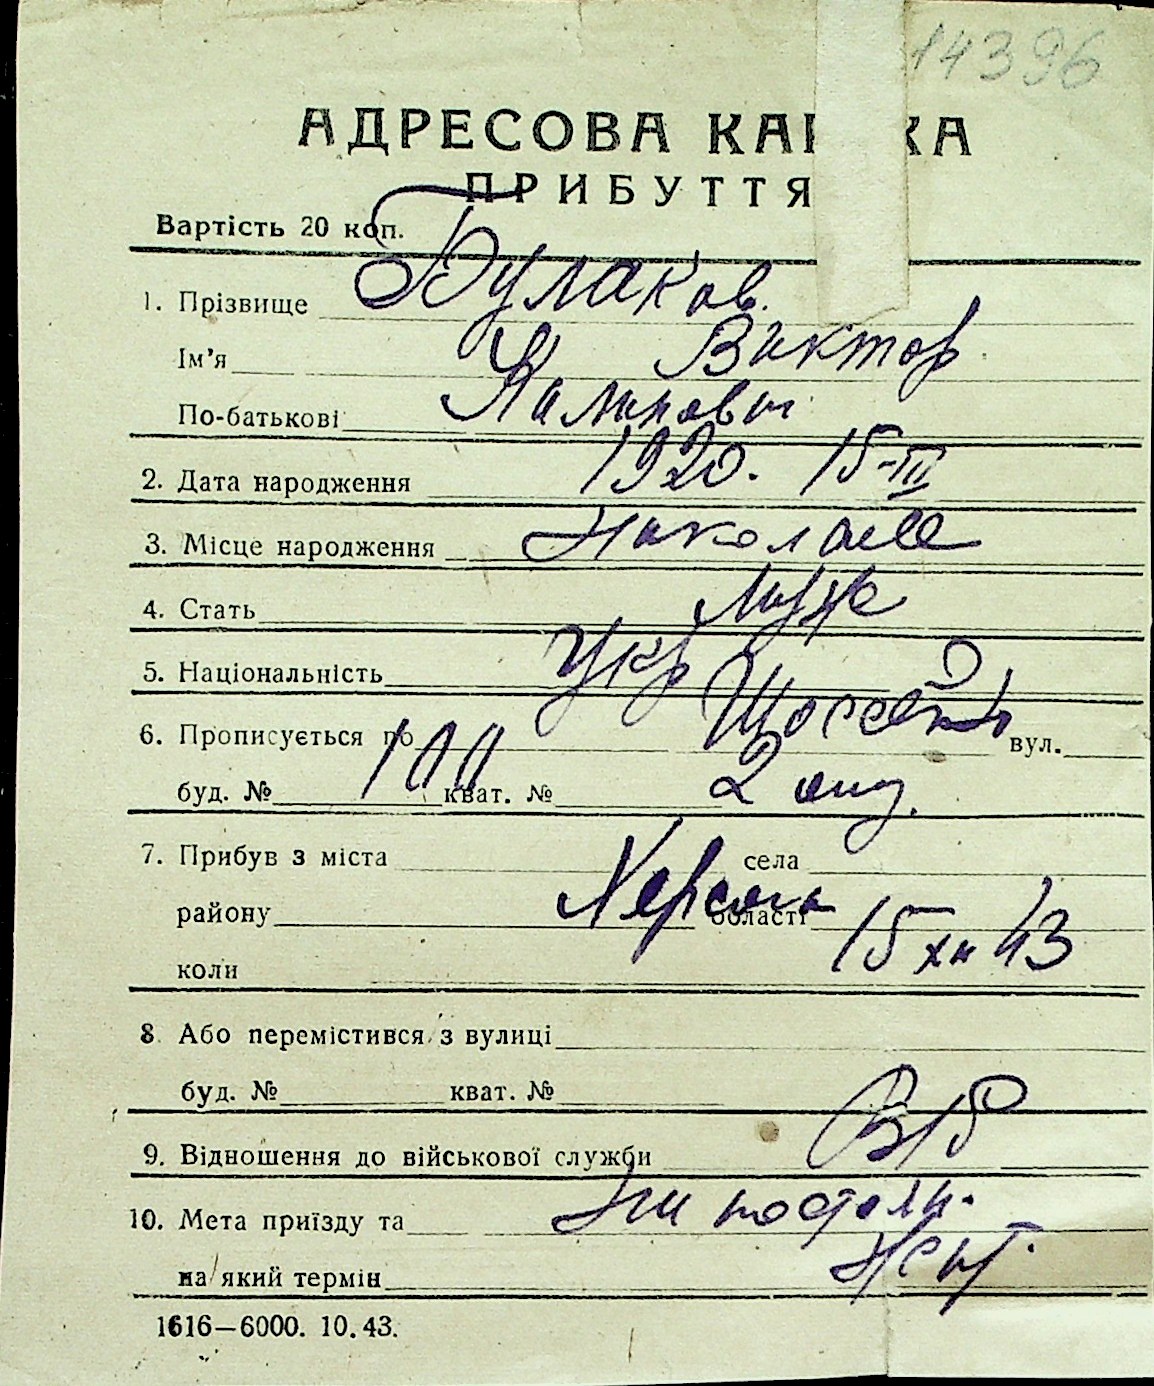 14396
АДРЕСОВА КАР КА
ПРИБУТТЯ
Вартість 20 коп.
1. Прізвище Булаков.
Ім'я Виктор
По-батькові
2. Дата народження 1920. 15-III
3. Місце народження Николаев
4. Стать муж
5. Національність Укр
6. Прописується по Шоссейн вул.
буд. № 100 кват. № 2
7. Прибув з міста села
району Херсона області
коли 15 XII 43
8 Або перемістився з вулиці
буд. № кват. №
9. Відношення до військової служби В/б
10. Мета приїзду та На постоян.
на який термін жит.
1616—6000. 10. 43.